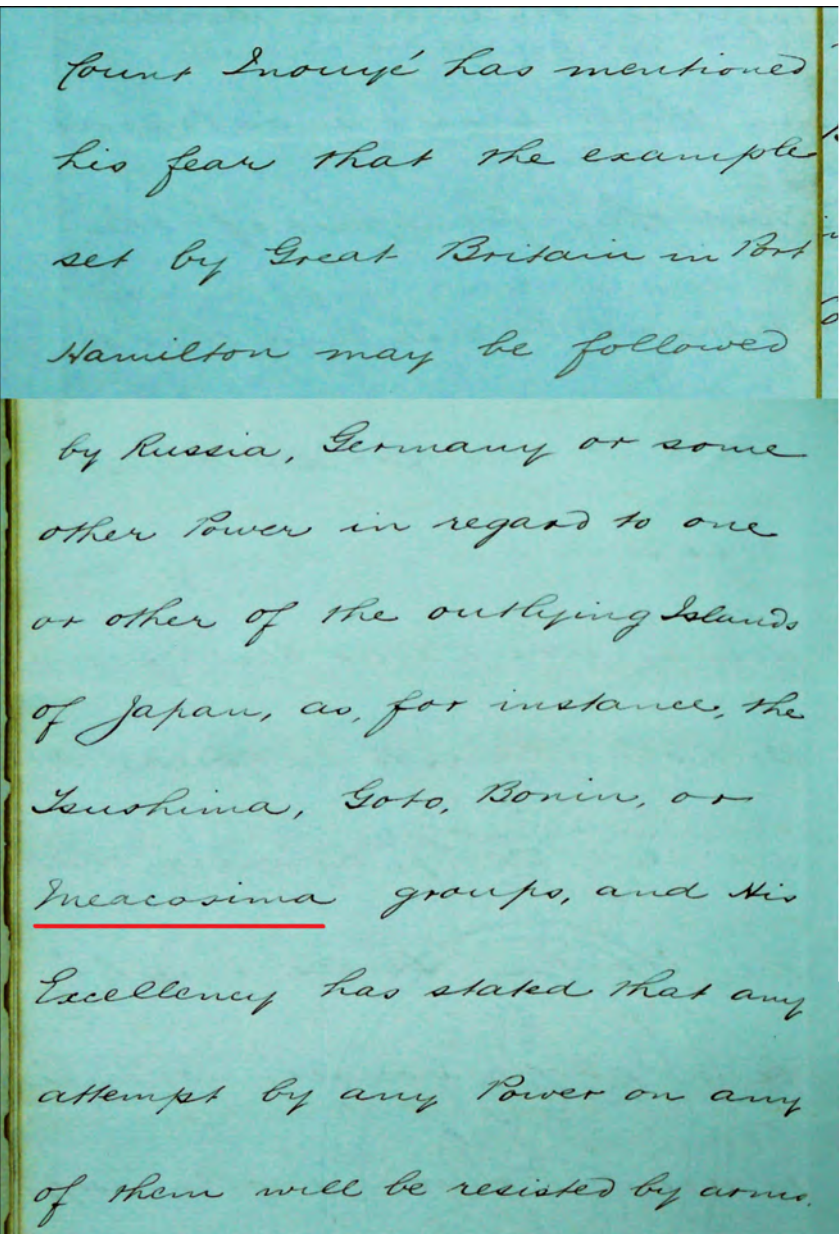 Count Inouyé has mentioned
his fear that the example
set by Great Britain in Port
Hamilton may be followed
by Russia, Germany or some
other Power in regard to one
or other of the outlying Islands
of Japan, as, for instance, the
Tsushima, Goto, Bonin, or
Meacosima groups, and His
Excellency has stated that any
attempt by any Power on any
of them will be resisted by arms.